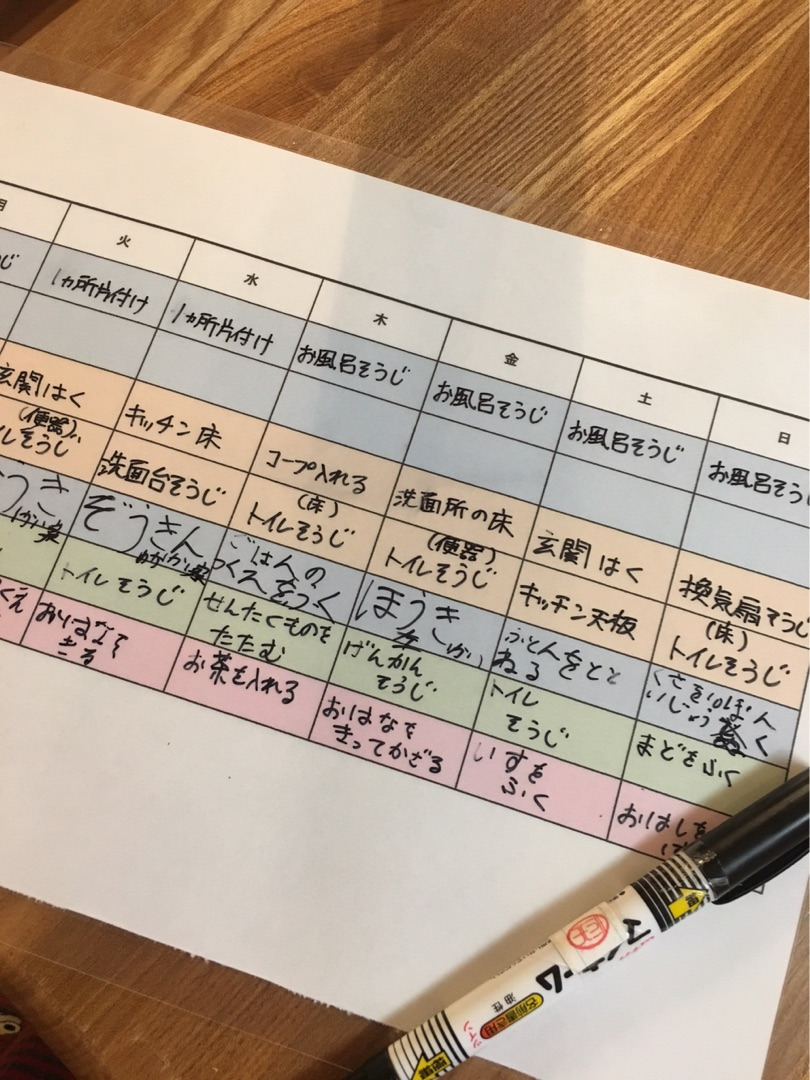 月
火
水
木
金
土
日
1ヵ所片付け
1ヵ所片付け
お風呂そうじ
お風呂そうじ
お風呂そうじ
お風呂そうじ
玄関はく
キッチン床
コープ入れる
洗面所の床
玄関はく
換気扇そうじ
(便器)
レそうじ
洗面台そうじ
(床)
トイレそうじ
(便器)
トイレそうじ
キッチン天板
(床)
トイレそうじ
うき
ぞうきん
ごはんの
ほうき
ふとんをとと
ねる
くさを10ぽん
いじょう
く
トイレそうじ
せんたくものを
たたむ
げんかん
そうじ
トイレ
そうじ
まどをふく
くえ
きる
お茶を入れる
おはなを
きってかざる
いすを
ふく
おはしを
油性
名前書き用
ツイン